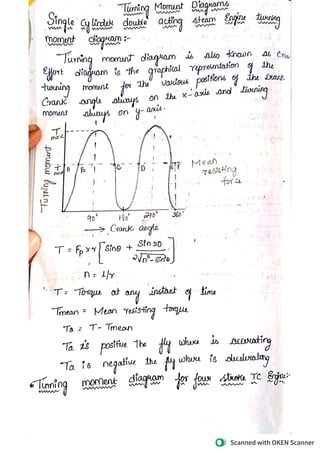 Turning Moment Diagrams
Single cylinder double acting steam Engine turning
moment diagram:-
Turning moment diagram is also known as Crank
Effort diagram is the graphical representation of the
turning moment for the various positions of the crank.
Crank angle always on the x-axis and turning
moment always on y-axis.
Turning moment
Tmax
Tmean
A B C D E F
Mean
resisting
force
90° 180° 270° 360°
→ Crank angle
T = Fp × r [Sinθ + Sin2θ / 2√n²-Sin²θ]
n = l/r
T = Torque at any instant of time
Tmean = Mean resisting torque
Ta = T - Tmean
Ta is positive the fly where is Accerating
Ta is negative the fly where is decelerating
• Turning moment diagram for four stroke IC Engine:-
Scanned with OKEN Scanner